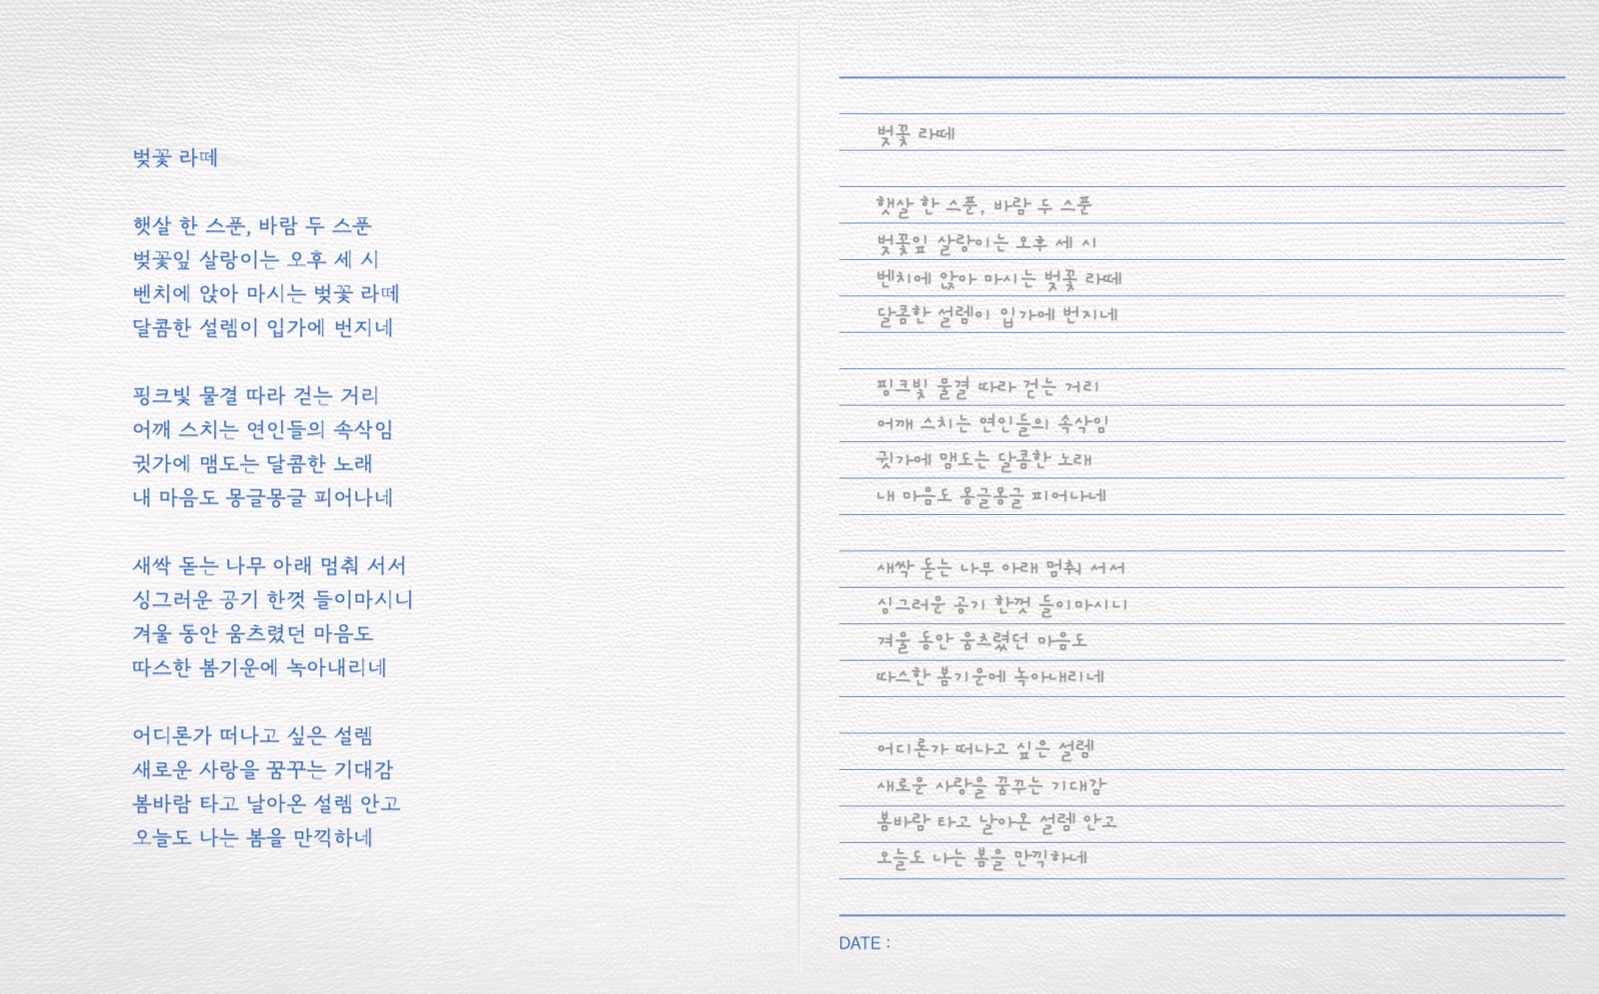 벚꽃 라떼
햇살 한 스푼, 바람 두 스푼
벚꽃잎 살랑이는 오후 세 시
벤치에 앉아 마시는 벚꽃 라떼
달콤한 설렘이 입가에 번지네
핑크빛 물결 따라 걷는 거리
어깨 스치는 연인들의 속삭임
귓가에 맴도는 달콤한 노래
내 마음도 몽글몽글 피어나네
새싹 돋는 나무 아래 멈춰 서서
싱그러운 공기 한껏 들이마시니
겨울 동안 움츠렸던 마음도
따스한 봄기운에 녹아내리네
어디론가 떠나고 싶은 설렘
새로운 사랑을 꿈꾸는 기대감
봄바람 타고 날아온 설렘 안고
오늘도 나는 봄을 만끽하네
벚꽃 라떼
햇살 한 스푼, 바람 두 스푼
벚꽃잎 살랑이는 오후 세 시
벤치에 앉아 마시는 벚꽃 라떼
달콤한 설렘이 입가에 번지네
핑크빛 물결 따라 걷는 거리
어깨 스치는 연인들의 속삭임
귓가에 맴도는 달콤한 노래
내 마음도 몽글몽글 피어나네
새싹 돋는 나무 아래 멈춰 서서
싱그러운 공기 한껏 들이마시니
겨울 동안 움츠렸던 마음도
따스한 봄기운에 녹아내리네
어디론가 떠나고 싶은 설렘
새로운 사랑을 꿈꾸는 기대감
봄바람 타고 날아온 설렘 안고
오늘도 나는 봄을 만끽하네
DATE :